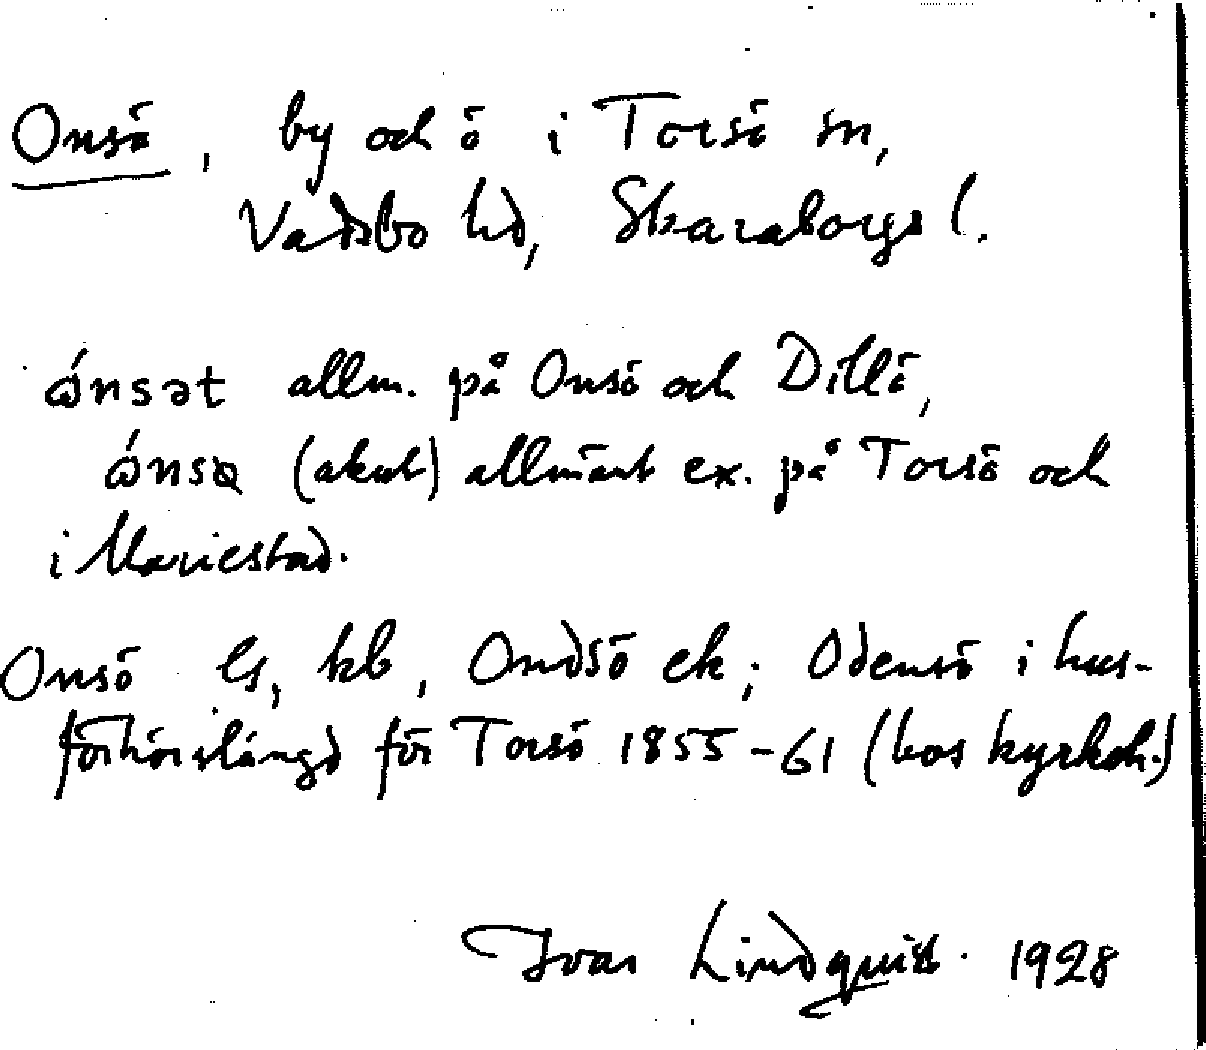 Onsö, by och ö i Torsö sn,
Vadsbo hd, Skaraborgs l.
ɷ́nsət allm. på Onsö och Dillö,
ɷ́nsɷ (akut) allmänt ex. på Torsö och
i Mariestad.
Onsö ls, kb, Ondsö ek; Odensö i hus-
förhörslängd för Torsö 1855-61 (hos kyrkoh.)
Ivar Lindquist. 1928